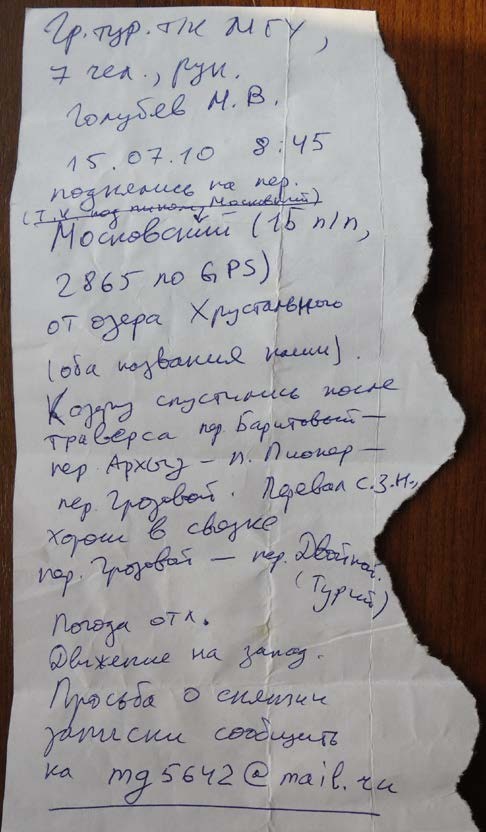 Гр. тур. т/к МГУ,
7 чел., рук.
Голубев М. В.
15.07.10 8:45
поднялись на пер.
(т.к. под пиком Московский)
Московский (1Б п/п,
2865 по GPS)
от озера Хрустального
(оба названия наши).
К озеру спустились после
траверса пер. Баритовый —
пер. Архыз — п. Пионер —
пер. Грозовой. Перевал с.з.н.,
хорош в связке
пер. Грозовой — пер. Двойной.
(Турий)
Погода отл.
Движение на запад.
Просьба о снятии
записки сообщить
на mg5642@mail.ru